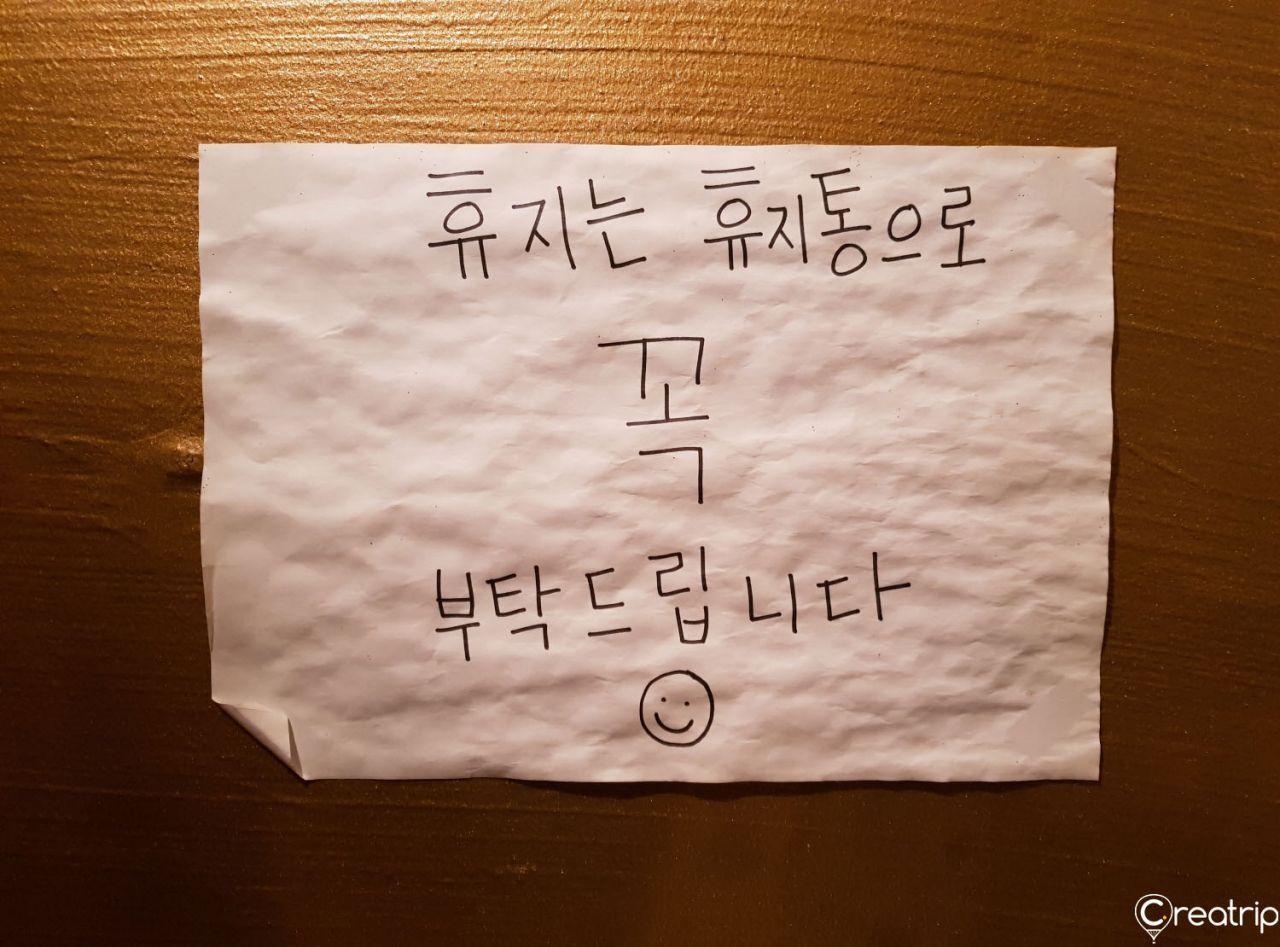 휴지는 휴지통으로
꼭
부탁드립니다
Creatrip